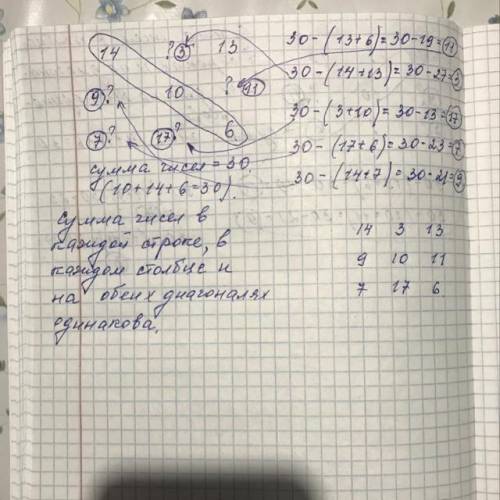 14 ? 3 13
9 ? 10 ? 11
7 ? 17 ? 6
сумма чисел = 30.
(10+14+6=30).
30 - (13+6) = 30-19 = 11
30 - (14+13) = 30-27 = 3
30 - (3+10) = 30-13 = 17
30 - (17+6) = 30-23 = 7
30 - (14+7) = 30-21 = 9
сумма чисел в
каждой строке, в
каждом столбце и
на обеих диагоналях
одинакова.
14 3 13
9 10 11
7 17 6